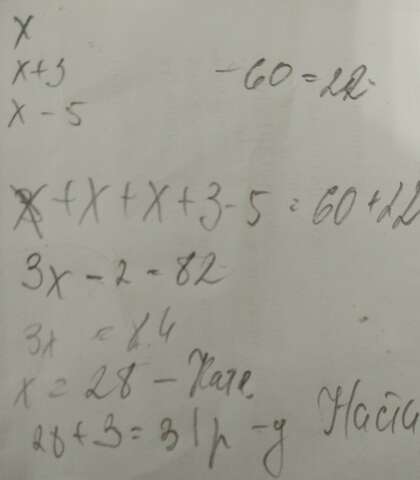 x
x+3 -60=22
x-5
x+x+x+3-5=60+22
3x-2=82
3x=84
x=28 - Кате
28+3=31р-у Наста